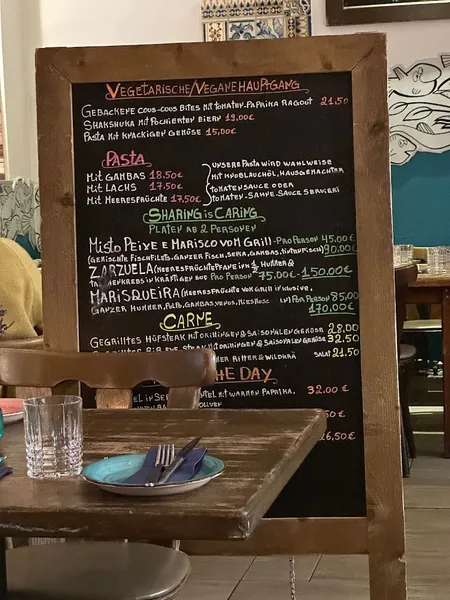 Vegetarische/Vegane Hauptgang
Gebackene Cous-Cous Bites mit Tomaten-Paprika Ragout 21,50
Shakshuka mit Pochierten Eiern 19,00€
Pasta mit knackigen Gemüse 15,00€
Pasta
Mit Gambas 18.50€
Mit Lachs 17.50€
Mit Meeresfrüchte 17,50€
Unsere Pasta wird wahlweise
mit Knoblauchöl, Hausgemachter
Tomatensauce oder
Tomaten-Sahne-Sauce Serviert
Sharing is Caring
Platen ab 2 Personen
Misto Peixe e Marisco vom Grill - Pro Person 45,00€
(Gemischte Fischfilets, Ganzer Fisch, Sepia, Gambas, Tintenfisch) 90,00€
Zarzuela (Meeresfrüchtepfanne im 1/2 Hummer &
in kräftigen Sud Pro Person 75,00€ - 150,00€
Marisqueira (Meeresfrüchte vom Grill inklusive,
Ganzer Hummer, Pulpo, Gambas, Pro Person 85,00
170,00€
Carne
Gegrilltes Hüftsteak mit Drillingen & Saisonalen Gemüse 28,00
mit Drillingen & Saisonalen Gemüse 32,50
Salat 21.50
he Day
mit warmen Paprika, 32.00€
Oliven
,50€
26,50€